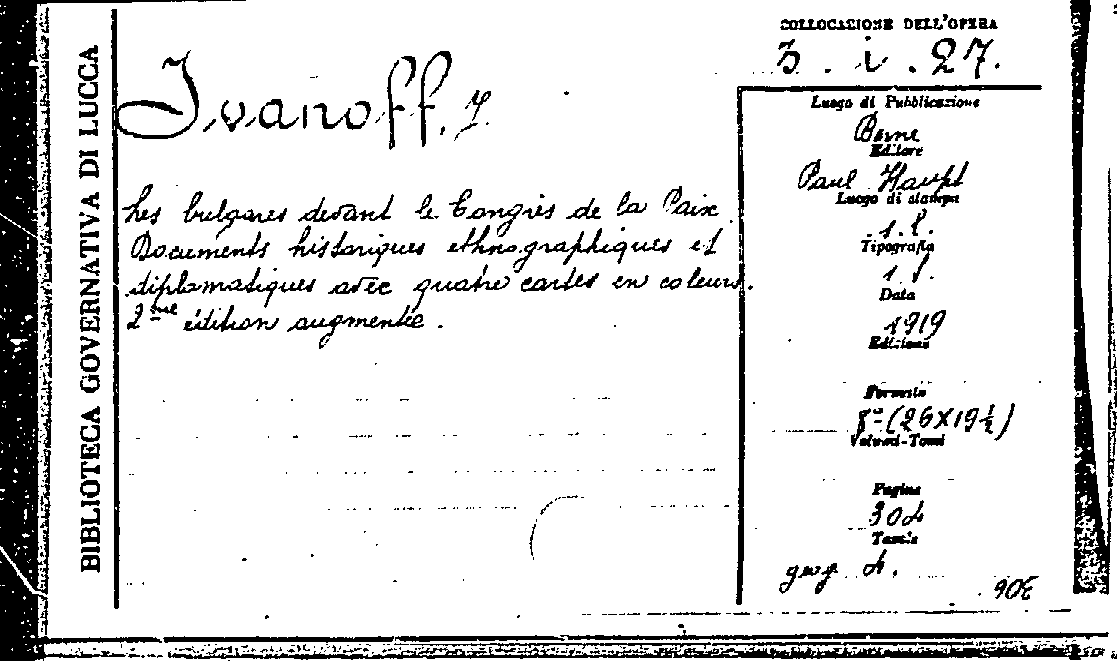 BIBLIOTECA GOVERNATIVA DI LUCCA
COLLOCAZIONE DELL'OPERA
3. i. 27.
Ivanoff, J.
Les bulgares devant le Congrès de la Paix.
Documents historiques ethnographiques et
diplomatiques avec quatre cartes en coleurs.
2me édition augmentée.
Luogo di Pubblicazione
Berne
Editore
Paul Haupt
Luogo di stampa
Tipografia
Data
1919
Edizione
Formato
8° (26x19½)
Volumi-Tomi
Pagine
304
Tavole
geog. 4.